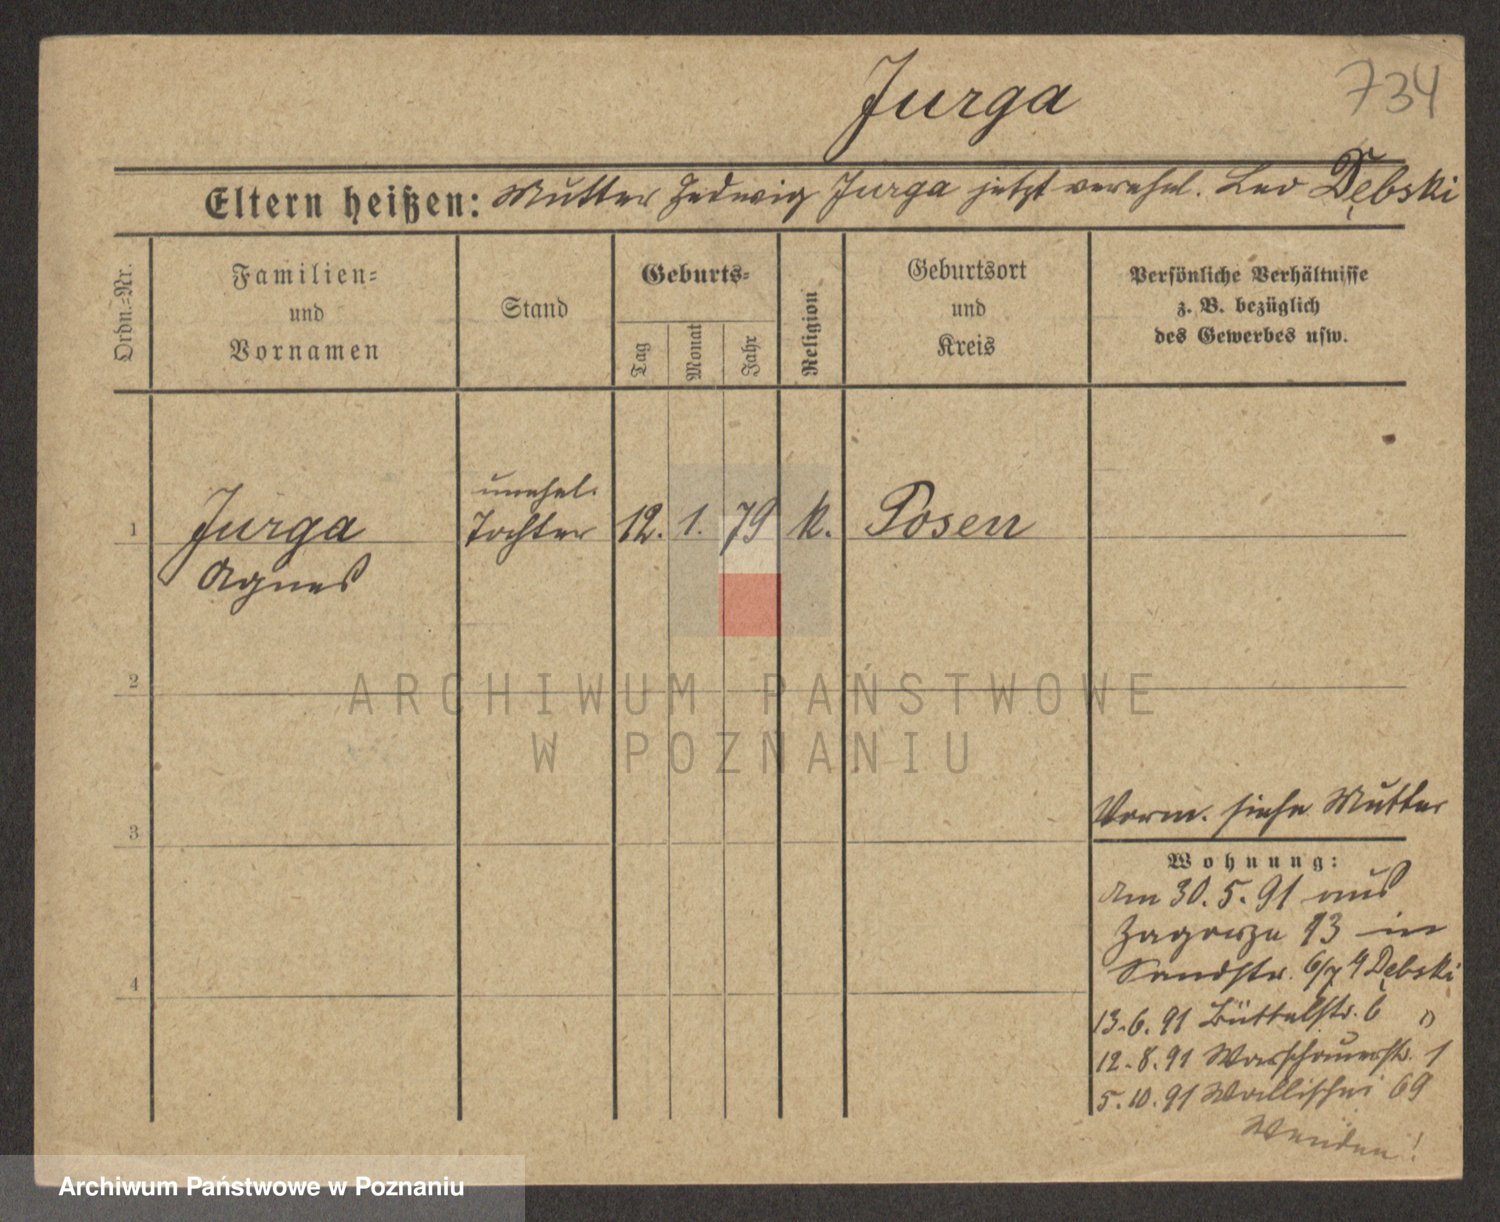 734
Jurga
Eltern heißen: Mutter Hedwig Jurga jetzt verehel. Leo Dębski
Ordn.-Nr.
Familien-
und
Vornamen
Stand
Geburts-
Tag
Monat
Jahr
Religion
Geburtsort
und
Kreis
Persönliche Verhältnisse
z. B. bezüglich
des Gewerbes usw.
unehel.
1 Jurga Tochter 12. 1. 79 k. Posen
Agnes
2
ARCHIWUM PAŃSTWOWE
W POZNANIU
3
Vorm. siehe Mutter
Wohnung:
Am 30. 5. 91 aus
Zagorze 13 in
Sandstr. 6/7 4 Dębski
4
13.6.91 Büttelstr. 6 "
12.8.91 Warschauerstr. 1
5.10.91 Wallischei 69
Wenden!
Archiwum Państwowe w Poznaniu